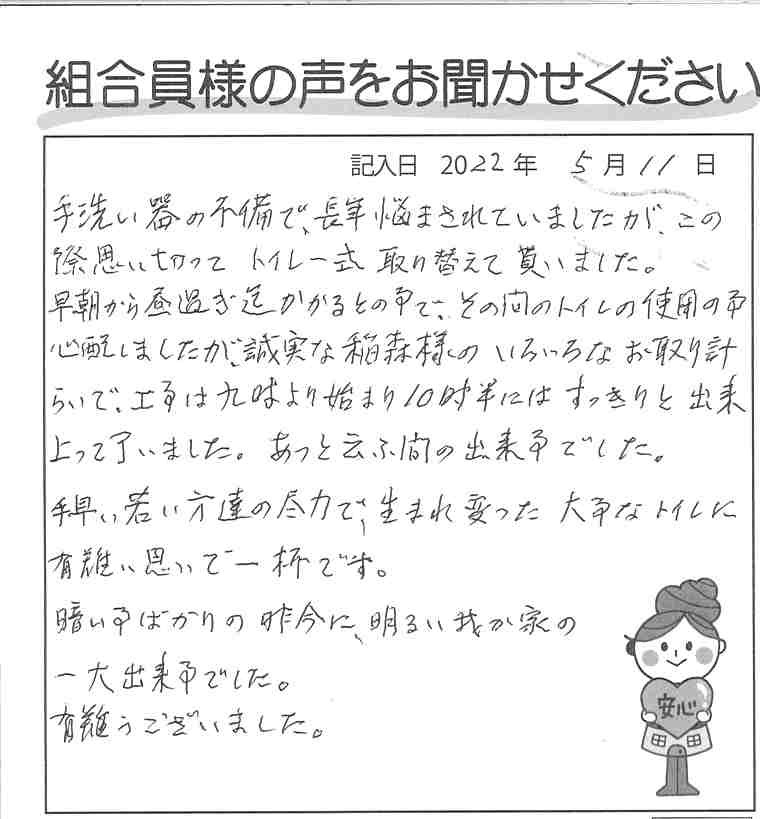 組合員様の声をお聞かせください
記入日 2022年 5月11日
手洗い器の不備で、長年悩まされていましたが、この
際思い切って トイレ一式 取り替えて貰いました。
早朝から昼過ぎ迄かかるとの事で、その間のトイレの使用の事
心配しましたが、誠実な稲森様のいろいろなお取り計
らいで、工事は九時より始まり10時半にはすっきりと出来
上って了いました。あっと云ふ間の出来事でした。
手早い若い方達の尽力で、生まれ変った 大事なトイレに
有難い思いで一杯です。
暗い事ばかりの昨今に、明るい我が家の
一大出来事でした。
有難うございました。
安心